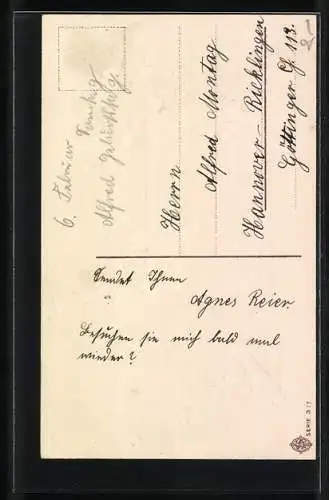 6. Februar
Alfred Geburtstag.
Herrn
Alfred Montag
Hannover-Ricklingen
Göttinger Ch. 113.
Sendet Ihnen
Agnes Reier.
Besuchen sie mich bald mal
wieder?
SERIE 317